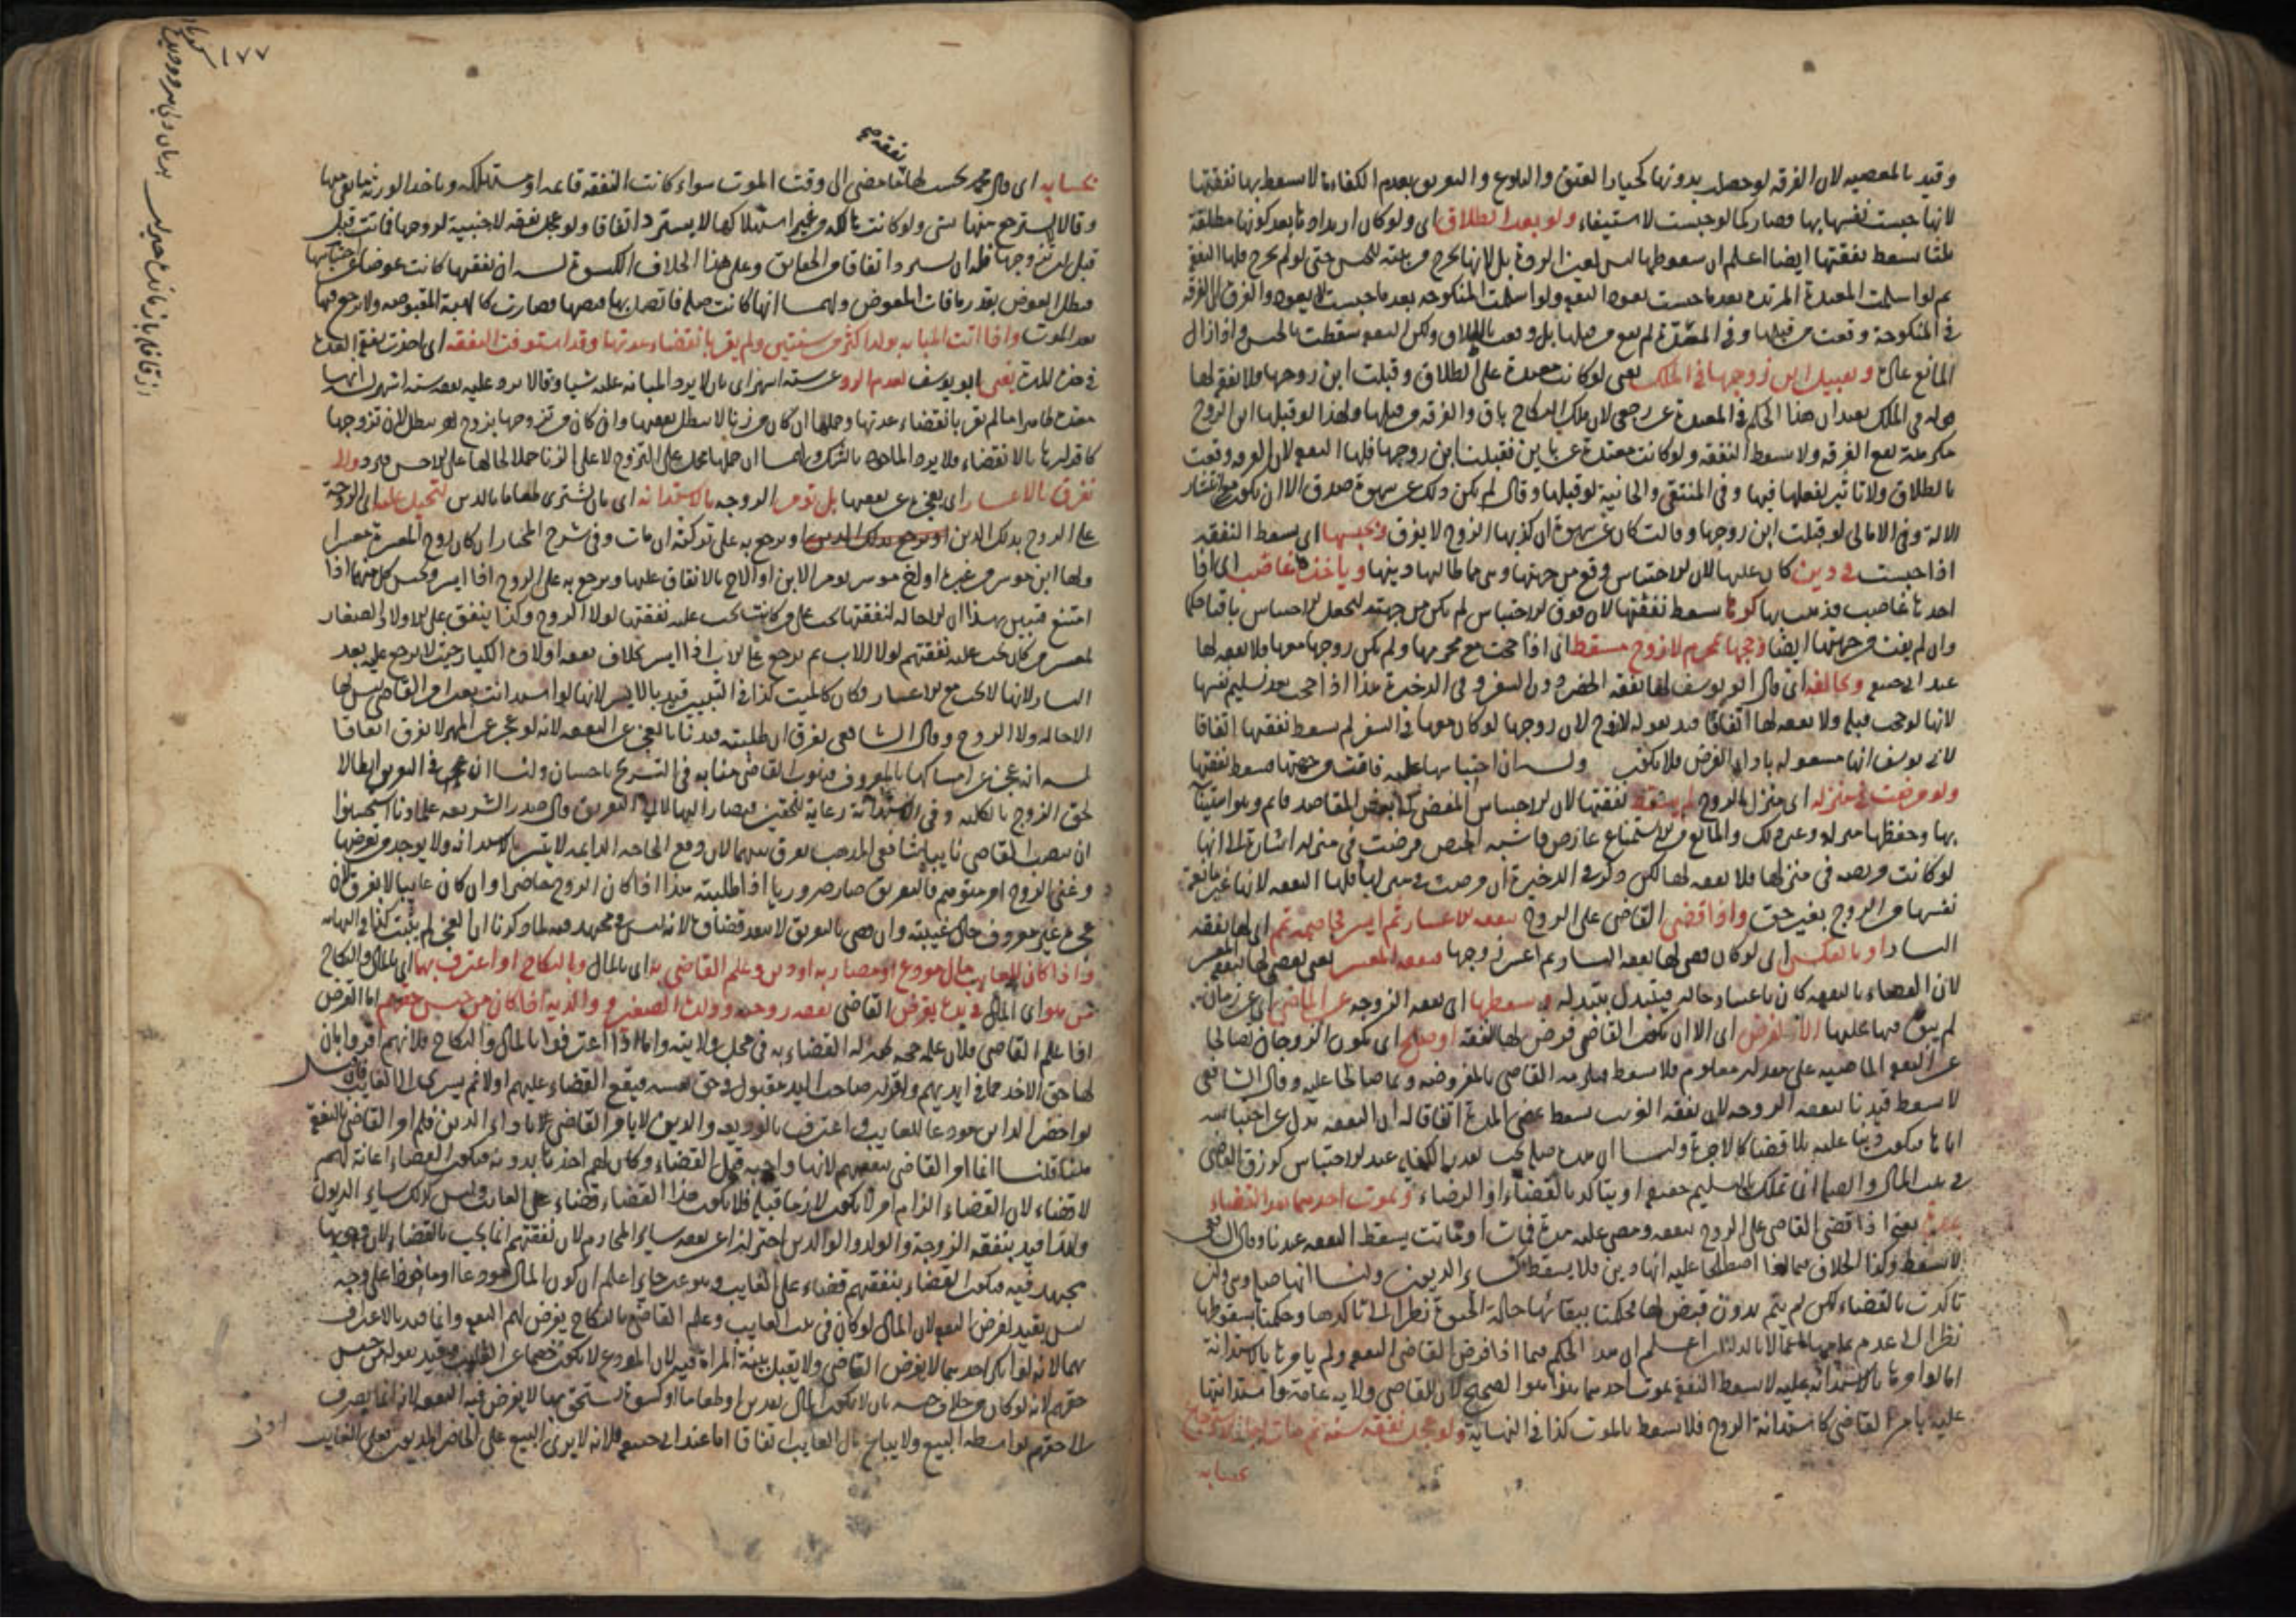 وقيد بالمعصية لان الفرقة لو حصلت بدونها كخيار العتق والبلوغ والتفريق بعدم الكفاءة لا يسقط بها نفقتها
لانها حبست نفسها بها وصار كما لو حبست لاستيفاء ولو بعد الطلاق اى ولو كان ارتدادها بعد كونها مطلقة
ثلثا يسقط نفقتها ايضا اعلم ان سقوطها ليس لعين الردة بل لانها تخرج من بيته للحبس حتى لو لم تخرج فلها النفقة
ثم لو اسلمت المعتدة المرتدة بعد ما حبست تعود النفقة ولو اسلمت المنكوحة بعد ما حبست لا يعود والفرق ان الفرقة
فى المنكوحة وقعت من قبلها وفى المعتدة لم تقع من قبلها بل وقعت بالطلاق ولكن النفقة سقطت بالحبس واذا زال
المانع عاد وتقبيل ابن زوجها فى الملك يعنى لو كانت معتدة على الطلاق وقبلت ابن زوجها ولا نفقة لها
قوله فى الملك يفيد ان هذا الحكم فى المعتدة عن رجعى لان ملك النكاح باق والفرقة من قبلها ولهذا لو قبلها ابن الزوج
مكرهة تقع الفرقة ولا تسقط النفقة ولو كانت معتدة عن باين فقبلت ابن زوجها فلها النفقة لان الفرقة وقعت
بالطلاق ولا تاثير لفعلها فيها وفى المنتقى والخانية لو قبلها وقال لم يكن ذلك عن شهوة صدق الا ان يكون مع انتشار
الالة وفى الامالى لو قبلت ابن زوجها وقالت كان عن شهوة ان كذبها الزوج لا يفرق وحبسها اى يسقط النفقة
اذا حبست فى دين كان عليها لان الاحتباس وقع من جهتها وهى مماطلتها دينها وياخذها غاصب اى اذا
اخذها غاصب فذهب بها كرها يسقط نفقتها لان فوت الاحتباس لم يكن من جهته ليجعل الاحتباس باقيا حكما
وان لم يفت من جهتها ايضا وحجها بمحرم لا زوج مسقط اى اذا حجت مع محرمها ولم يكن زوجها معها فلا نفقة لها
عند ابى حنيفة وخالفه اى قال ابو يوسف لها نفقة الحضر دون السفر وفى الذخيرة هذا اذا حجت بعد تسليم نفسها
لانها لو حجت قبله ولا نفقة لها اتفاقا قيد بقوله لا زوج لان زوجها لو كان معها فى السفر لم يسقط نفقتها اتفاقا
لابى يوسف انها مشغولة باداء الفرض فلا يفوت وله ان احتباسها عليه فاقت من جهتها فسقط نفقتها
ولو مرضت فى منزله اى منزل الزوج لم يسقط نفقتها لان الاحتباس المفضى الى بعض المقاصد قائم وهو استيناسه
بها وحفظها منزله وغير ذلك والمانع من الاستمتاع عارض فاشبه الحيض مرضت فى منزله اشارة الى انها
لو كانت مريضة فى منزلها فلا نفقة لها لكن ذكر فى الذخيرة ان مرضت فى منزلها فلها النفقة لانها غير مانعة
نفسها من الزوج بغير حق واذا قضى القاضى على الزوج بنفقة الاعسار ثم ايسر فخاصمته تمم اى لها نفقة
اليسار او بالعكس اى لو كان قضى لها نفقة اليسار ثم اعسر زوجها فنفقة المعسر يعنى يقضى لها نفقة المعسر
لان القضاء بالنفقة كان باعتبار حاله فيتبدل بتبدله ويسقطها اى نفقة الزوجة عن الماضى اى عن زمان
لم ينفق فيها عليها الا بفرض اى الا ان يكون القاضى فرض لها النفقة او صلح اى يكون الزوجان تصالحا
عن النفقة الماضية على مقدار معلوم فلا يسقط فيلزمه القاضى بالمفروضة وبما صالحا عليه وقال الشافعى
لا يسقط قيدنا بنفقة الزوجة لان نفقة القريب تسقط بمضى المدة اتفاقا له ان النفقة بدل عن احتباسه
اياها فيكون دينا عليه بلا قضاء كالاجرة ولنا ان هذه صلة يجب بقدر الكفاية عند الاحتباس كرزق القاضى
فى بيت المال والصلة انما تملك بالتسليم حقيقة او يتاكد بالقضاء او الرضاء وبموت احدهما بعد القضاء
يعنى اذا قضى القاضى على الزوج بنفقة ومضى عليه مدة فمات او ماتت يسقط النفقة عندنا وقال الشافعى
لا يسقط وكذا الخلاف فيما لو اصطلحا عليه انها دين فلا يسقط كساير الديون ولنا انها صلة وهى وان
تاكدت بالقضاء لكن لم يتم بدون قبض لها فحكمنا ببقائها حالة الحيوة نظرا الى تاكدها وحكمنا بسقوطها
نظرا الى عدم تمامها اعلم ان هذا الحكم فيما اذا فرض القاضى النفقة ولم يامرها بالاستدانة
اما لو امرها بالاستدانة عليه لا يسقط النفقة بموت احدهما هو الصحيح لان للقاضى ولاية عامة واستدانتها
عليه بامر القاضى كاستدانة الزوج فلا يسقط بالموت كذا فى النهاية ولو عجل نفقة سنة ثم مات
بحسابه
١٧٧
نفقة ما صح
بحسابه اى قال محمد يحسب لها ما مضى الى وقت الموت سواء كانت النفقة قائمة او مستهلكة وياخذ الورثة ما بقى منها
وقالا لا يسترجع منها شئ ولو كانت هالكة من غير استهلاكها لا يسترد اتفاقا ولو عجل نفقة لاجنبية لزوجها فماتت قبل
قبل ان يتزوجها فله ان يسترد اتفاقا من الحقايق وعلى هذا الخلاف الكسوة له ان نفقتها كانت عوضا عن احتباسها
فبطل العوض بقدر ما فات المعوض ولهما انها كانت صلة فاتصل بها قبضها فصارت كالهبة المقبوضة ولا رجوع فيها
بعد الموت واذا اتت المبانة بولد اكثر من سنتين ولم يقر بانقضاء عدتها وقد استوفت النفقة اى اخذت نفقة العدة
فى هذه المدة يفتى ابو يوسف بعدم الرد عن ستة اشهر اى بان لا يرد المبانة عليه شيا وقالا يرد عليه نفقة ستة اشهر له انها
معتدة ظاهرا ما لم يقر بانقضاء عدتها وحملها ان كان من زنا لا يبطل نفقتها وان كان من تزوجها بزوج اخر يبطل لان تزوجها
كاقرارها بالانقضاء فلا يرد الماخوذ بالشك ولهما ان حملها يحمل على التزوج لا على الزنا حملا لحالها على الاحسن فيرد ولا
نفرق بالاعسار اى بعجزه عن نفقتها بل تؤمر الزوجة بالاستدانة اى بان تشترى طعاما بالدين لتحيل عليه اى الزوجة
على الزوج بذلك الدين او يرجع به على تركته ان مات وفى شرح المختار ان كان زوج المعسرة معسرا
ولها ابن موسر من غيره او اخ موسر يؤمر الابن او الاخ بالانفاق عليها ويرجع به على الزوج اذا ايسر ويحبس كل منهما اذا
امتنع فتبين بهذا ان الاحالة لنفقتها يجب على من كانت يجب عليه نفقتها لولا الزوج وكذا ينفق على الاولاد الصغار
لمعسر من كان يجب عليه نفقتهم لولا الاب ثم يرجع على الاب اذا ايسر بخلاف نفقة اولاده الكبار حيث لا يرجع عليه بعد
اليسار لانها لا يجب مع الاعسار فكان كالميت كذا فى التبيين قيد بالامر لانها لو استدانت بغير امر القاضى ليس لها
الاحالة ولا الرجوع وقال الشافعى يفرق ان طلبته قيدنا بالعجز عن النفقة لانه لو عجز عن المهر لا يفرق اتفاقا
له انه عجز عن امساكها بالمعروف فينوب القاضى منابه فى التسريح باحسان ولنا ان فى التفريق ابطالا
لحق الزوج بالكلية وفى الاستدانة رعاية للحقين فيصار اليها لا الى التفريق قال صدر الشريعة علماؤنا استحسنوا
ان ينصب القاضى نائبا شافعى المذهب يفرق بينهما لان دفع الحاجة الدائمة لا يتيسر بالاستدانة ولا يوجد من يقرضها
وغنى الزوج امر متوهم فالتفريق صار ضروريا اذا طلبته هذا اذا كان الزوج حاضرا وان كان غايبا لا يفرق لان
عجزه غير معروف حال غيبته وان قضى بالتفريق لا ينفذ قضاؤه لانه ليس فى مجتهد فيه لما ذكرنا ان العجز لم يثبت كذا فى النهاية
واذا كان للغايب مال مودع او مضاربة او دين وعلم القاضى به اى بالمال والنكاح او اعترف بهما اى بالمال والنكاح
من هو اى المال فى يده يفرض القاضى نفقة زوجته وولده الصغير ووالديه اذا كان من جنس حقهم اما الفرض
اذا علم القاضى فلان علمه حجة يجوز له القضاء به فى محل ولايته واما اذا اعترفوا بالمال والنكاح فلانهم اقروا بان
لها حق الاخذ مما فى ايديهم واقرار صاحب اليد مقبول فى حق نفسه فيقع القضاء عليهم اولا ثم يسرى الى الغايب فان قيل
لو احضر الداين مودعا للغايب واعترف بالوديعة والدين لا يامر القاضى باداء الدين فلم امر القاضى بالنفقة
هنا قلنا انما امر القاضى بنفقتهم لانها واجبة قبل القضاء وكان لهم اخذها بدونه فيكون القضاء اعانة لهم
لا قضاء لان القضاء الزام امر لا يكون لازما قبله فلا يكون هذا القضاء قضاء على الغايب وليس كذلك ساير الديون
ولهذا قيد بنفقة الزوجة والولد والوالدين احترازا عن نفقة ساير المحارم لان نفقتهم انما يجب بالقضاء لان وجوبها
مجتهد فيه فيكون القضاء بنفقتهم قضاء على الغايب وهو غير جايز اعلم ان كون المال مودعا او ماخوذا على وجه
ليس بقيد لفرض النفقة لان المال لو كان فى بيت الغايب وعلم القاضى بالنكاح يفرض لهم النفقة وانما قيد بالاعتراف
بهما لانه لو انكر احدهما لا يفرض القاضى ولا يقبل بينة المراة فيه لان المودع لا يكون خصما عن الغايب وقيد بقوله من جنس
حقهم لانه لو كان من خلاف جنسه بان لا يكون المال نقدين او طعاما او كسوة يستحق مثلها لا يفرض فيه النفقة لانه انما يصرف
الى حقهم بواسطة البيع ولا يباع مال الغايب اتفاقا اما عند ابى حنيفة فلانه لا يرى البيع على الحاضر المديون فعلى الغايب